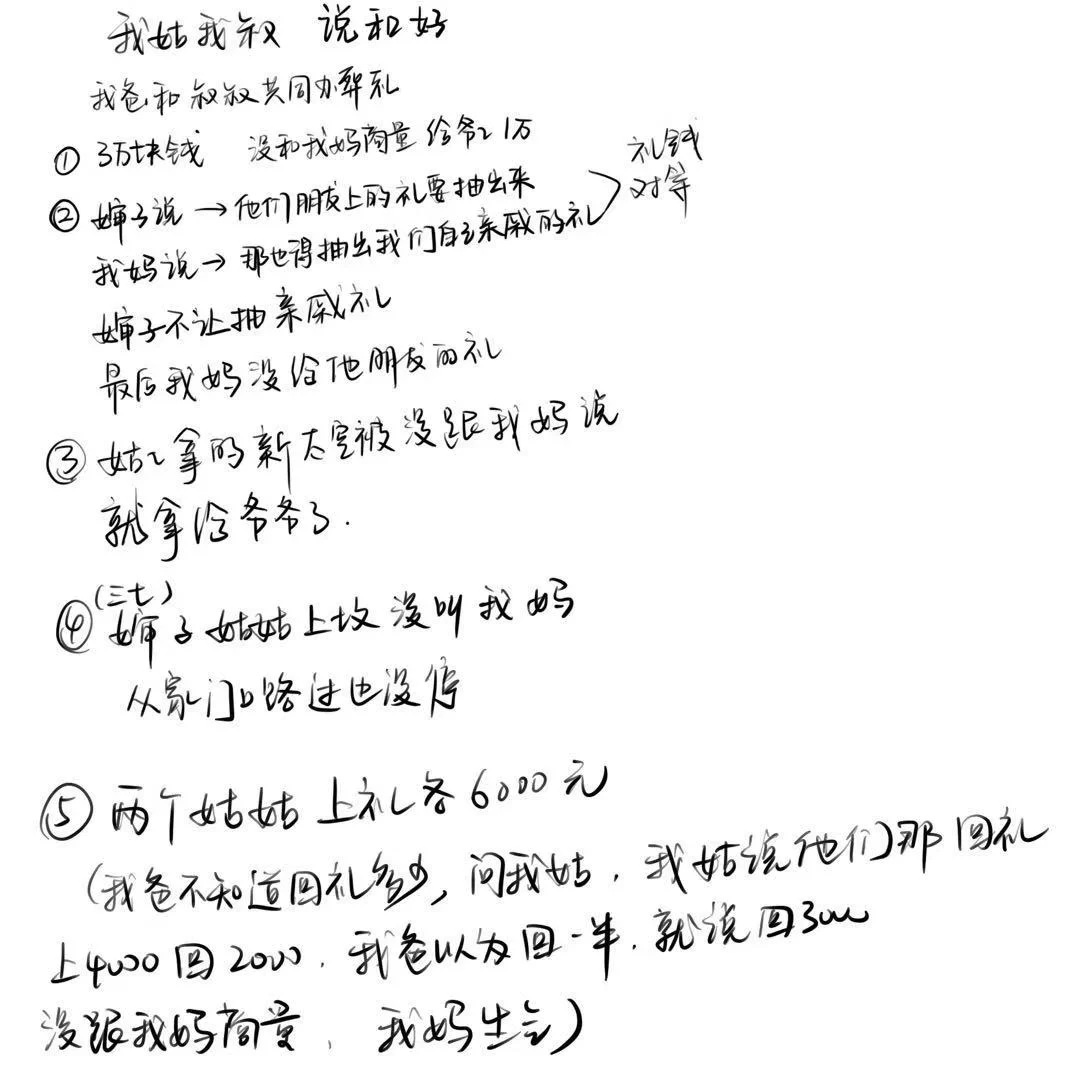 我姑我叔 说和好
我爸和叔叔共同办葬礼
① 3万块钱 没和我妈商量给爷爷1万
② 婶子说→他们朋友上的礼要抽出来
我妈说→那也得抽出我们自己亲戚的礼
礼钱
对等
婶子不让抽亲戚礼
最后我妈没给他朋友的礼
③ 姑姑拿的新太空被没跟我妈说
就拿给爷爷了.
(三七)
④ 婶子姑姑上坟没叫我妈
从家门口路过也没停
⑤ 两个姑姑上礼各6000元
(我爸不知道回礼多少,问我姑,我姑说他们那回礼
上4000回2000.我爸以为回一半.就说回3000
没跟我妈商量, 我妈生气)